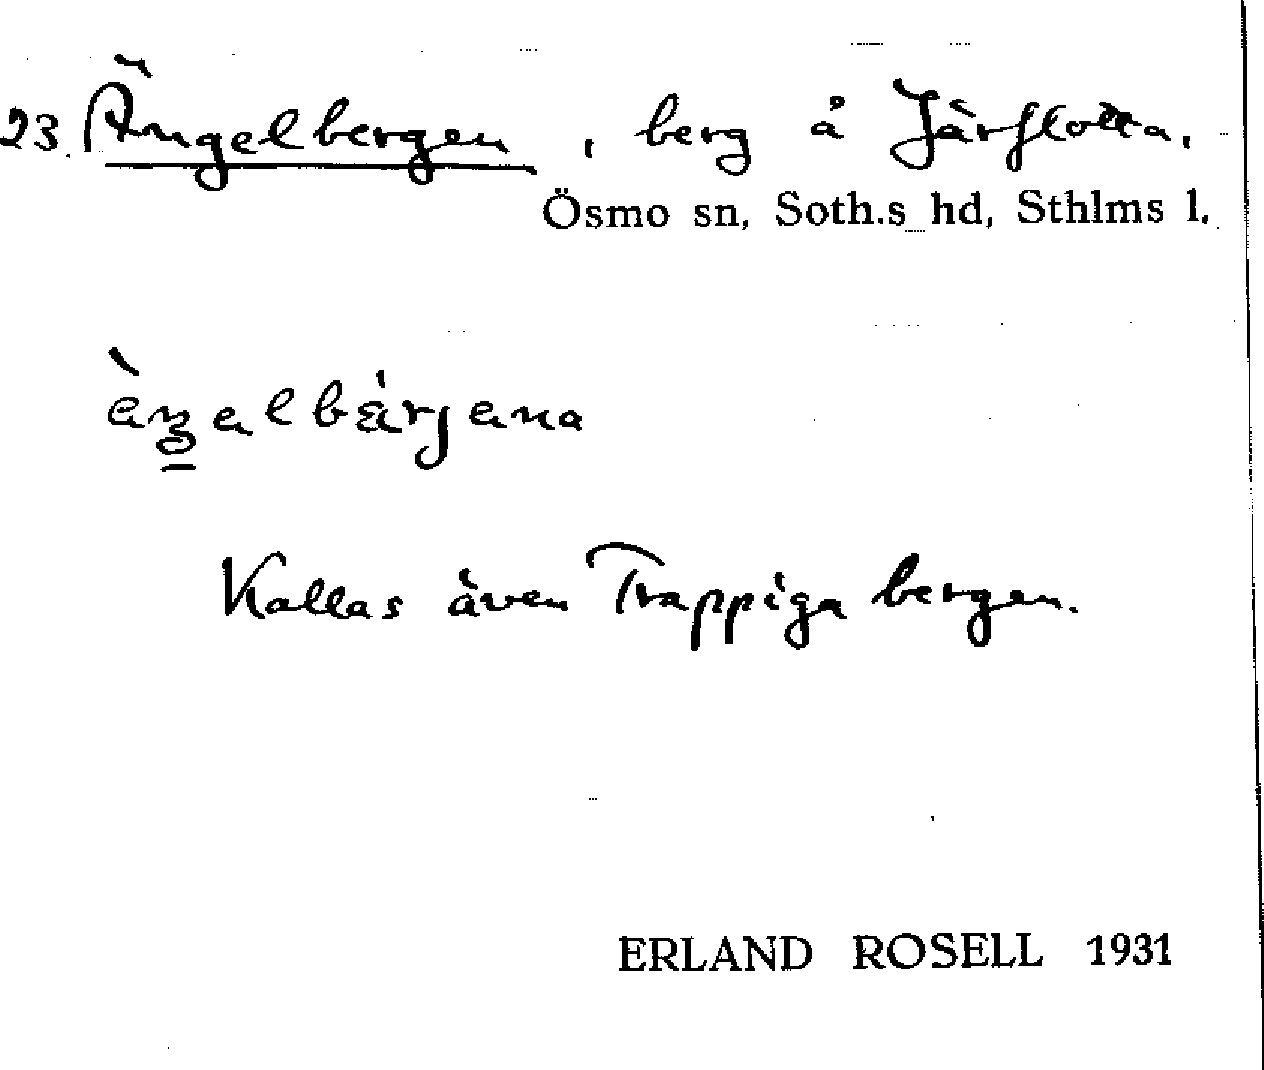 23. Ängelbergen, berg å Järflotta,
Ösmo sn, Soth.s hd, Sthlms l.
Kallas även Trappiga bergen.
ERLAND ROSELL 1931